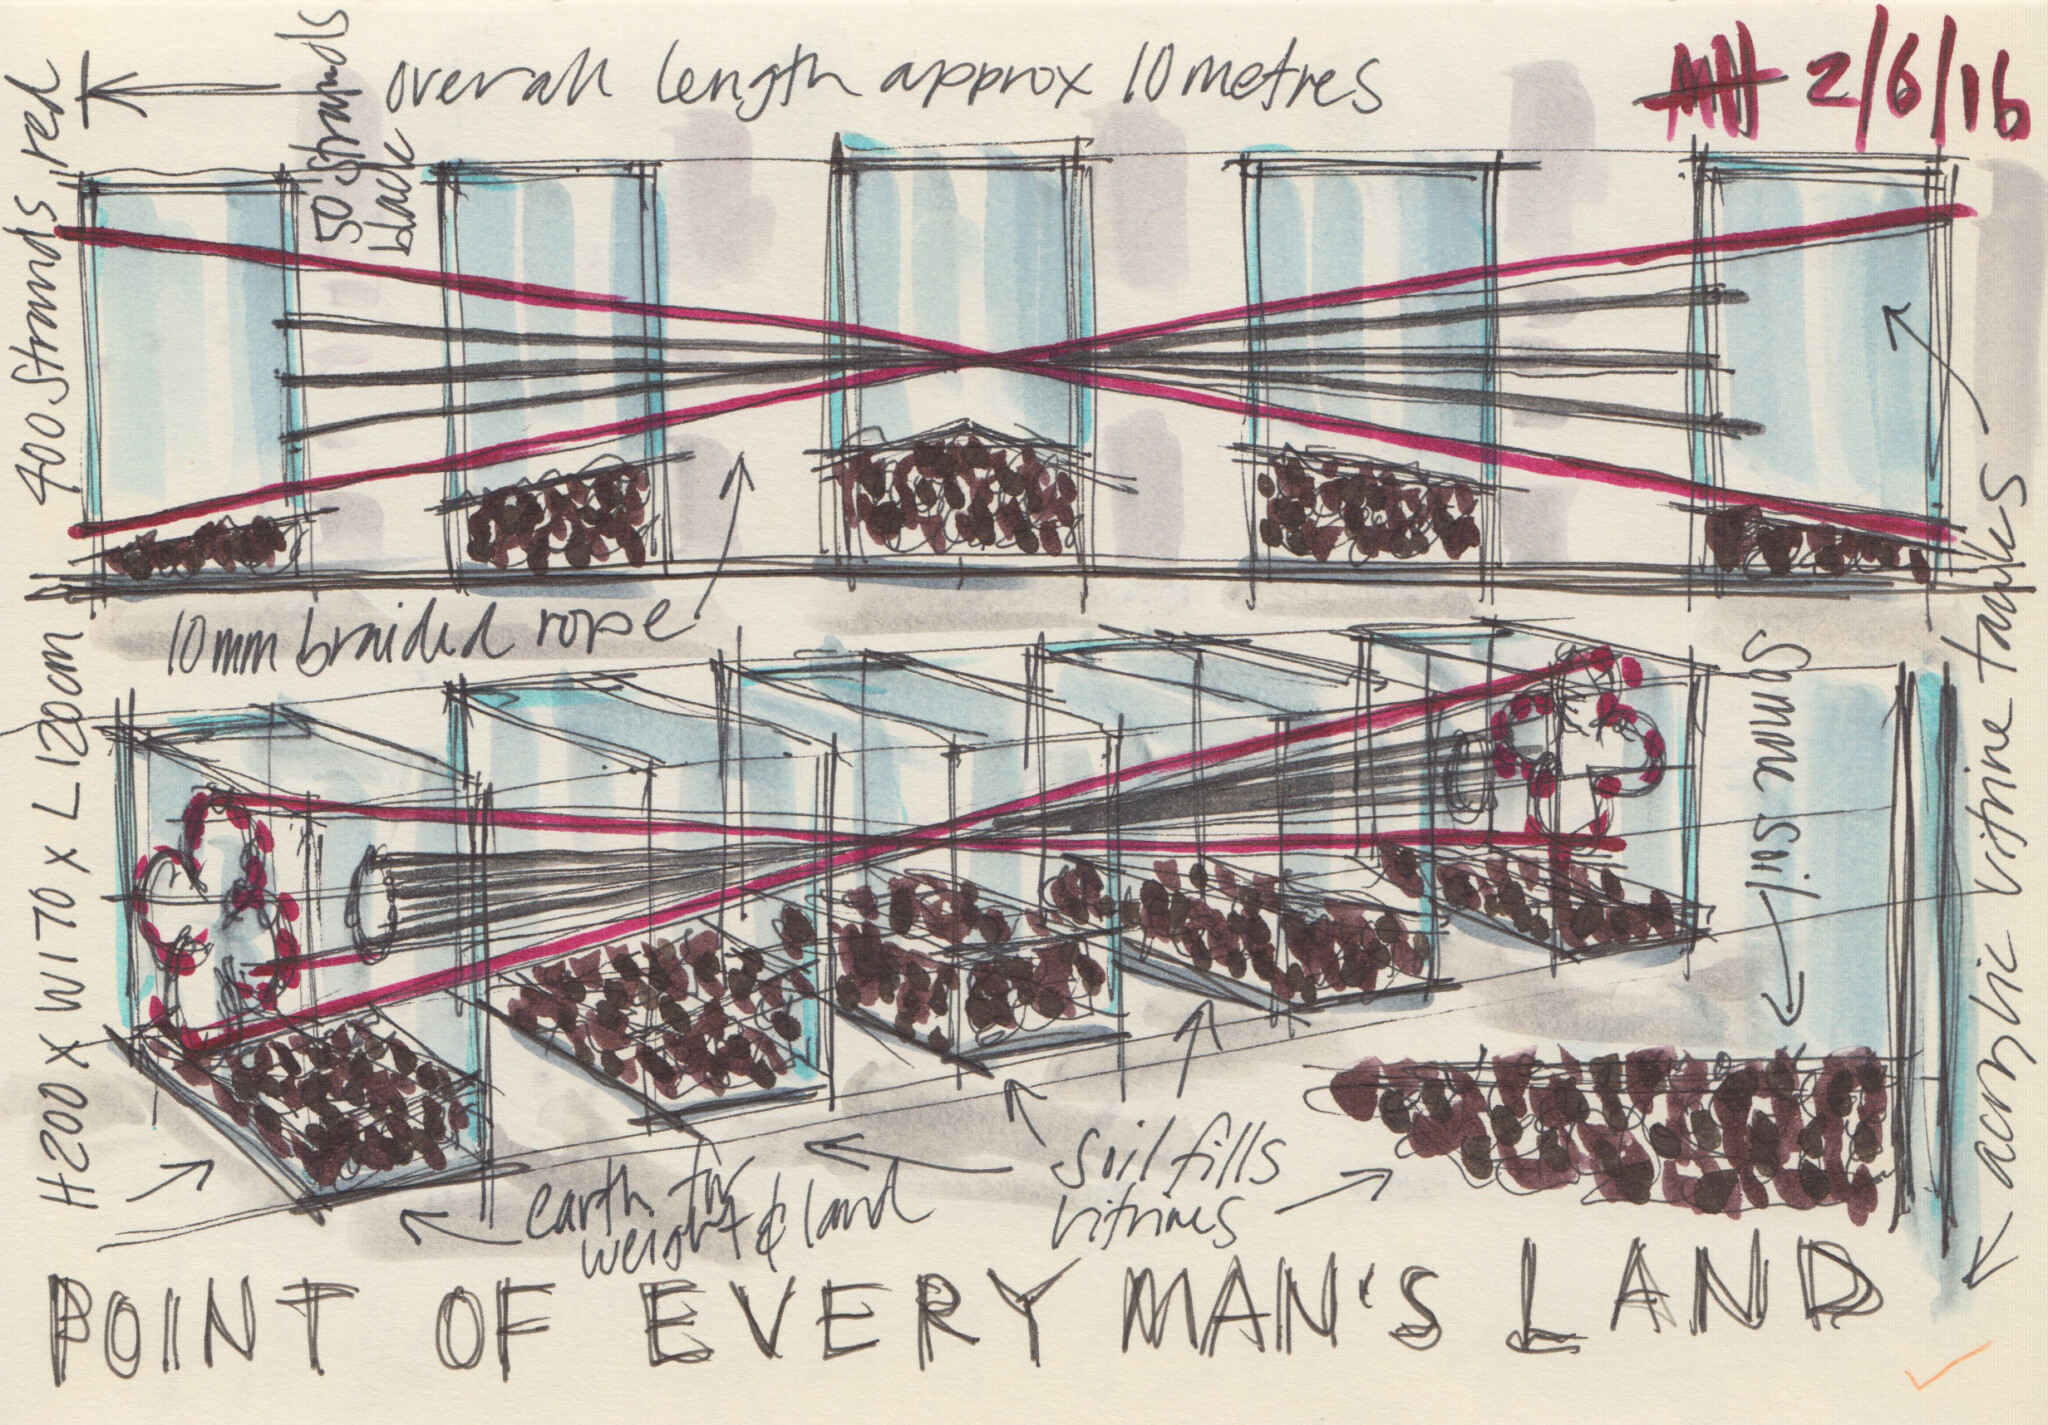 overall length approx 10 metres
MH 2/6/16
400 strands, red
50 strands
black
10mm braided rope
H200 x W170 x L120cm
Somme soil
acrylic vitrine tanks
earth for
weight & land
soil fills
vitrines
POINT OF EVERY MAN'S LAND